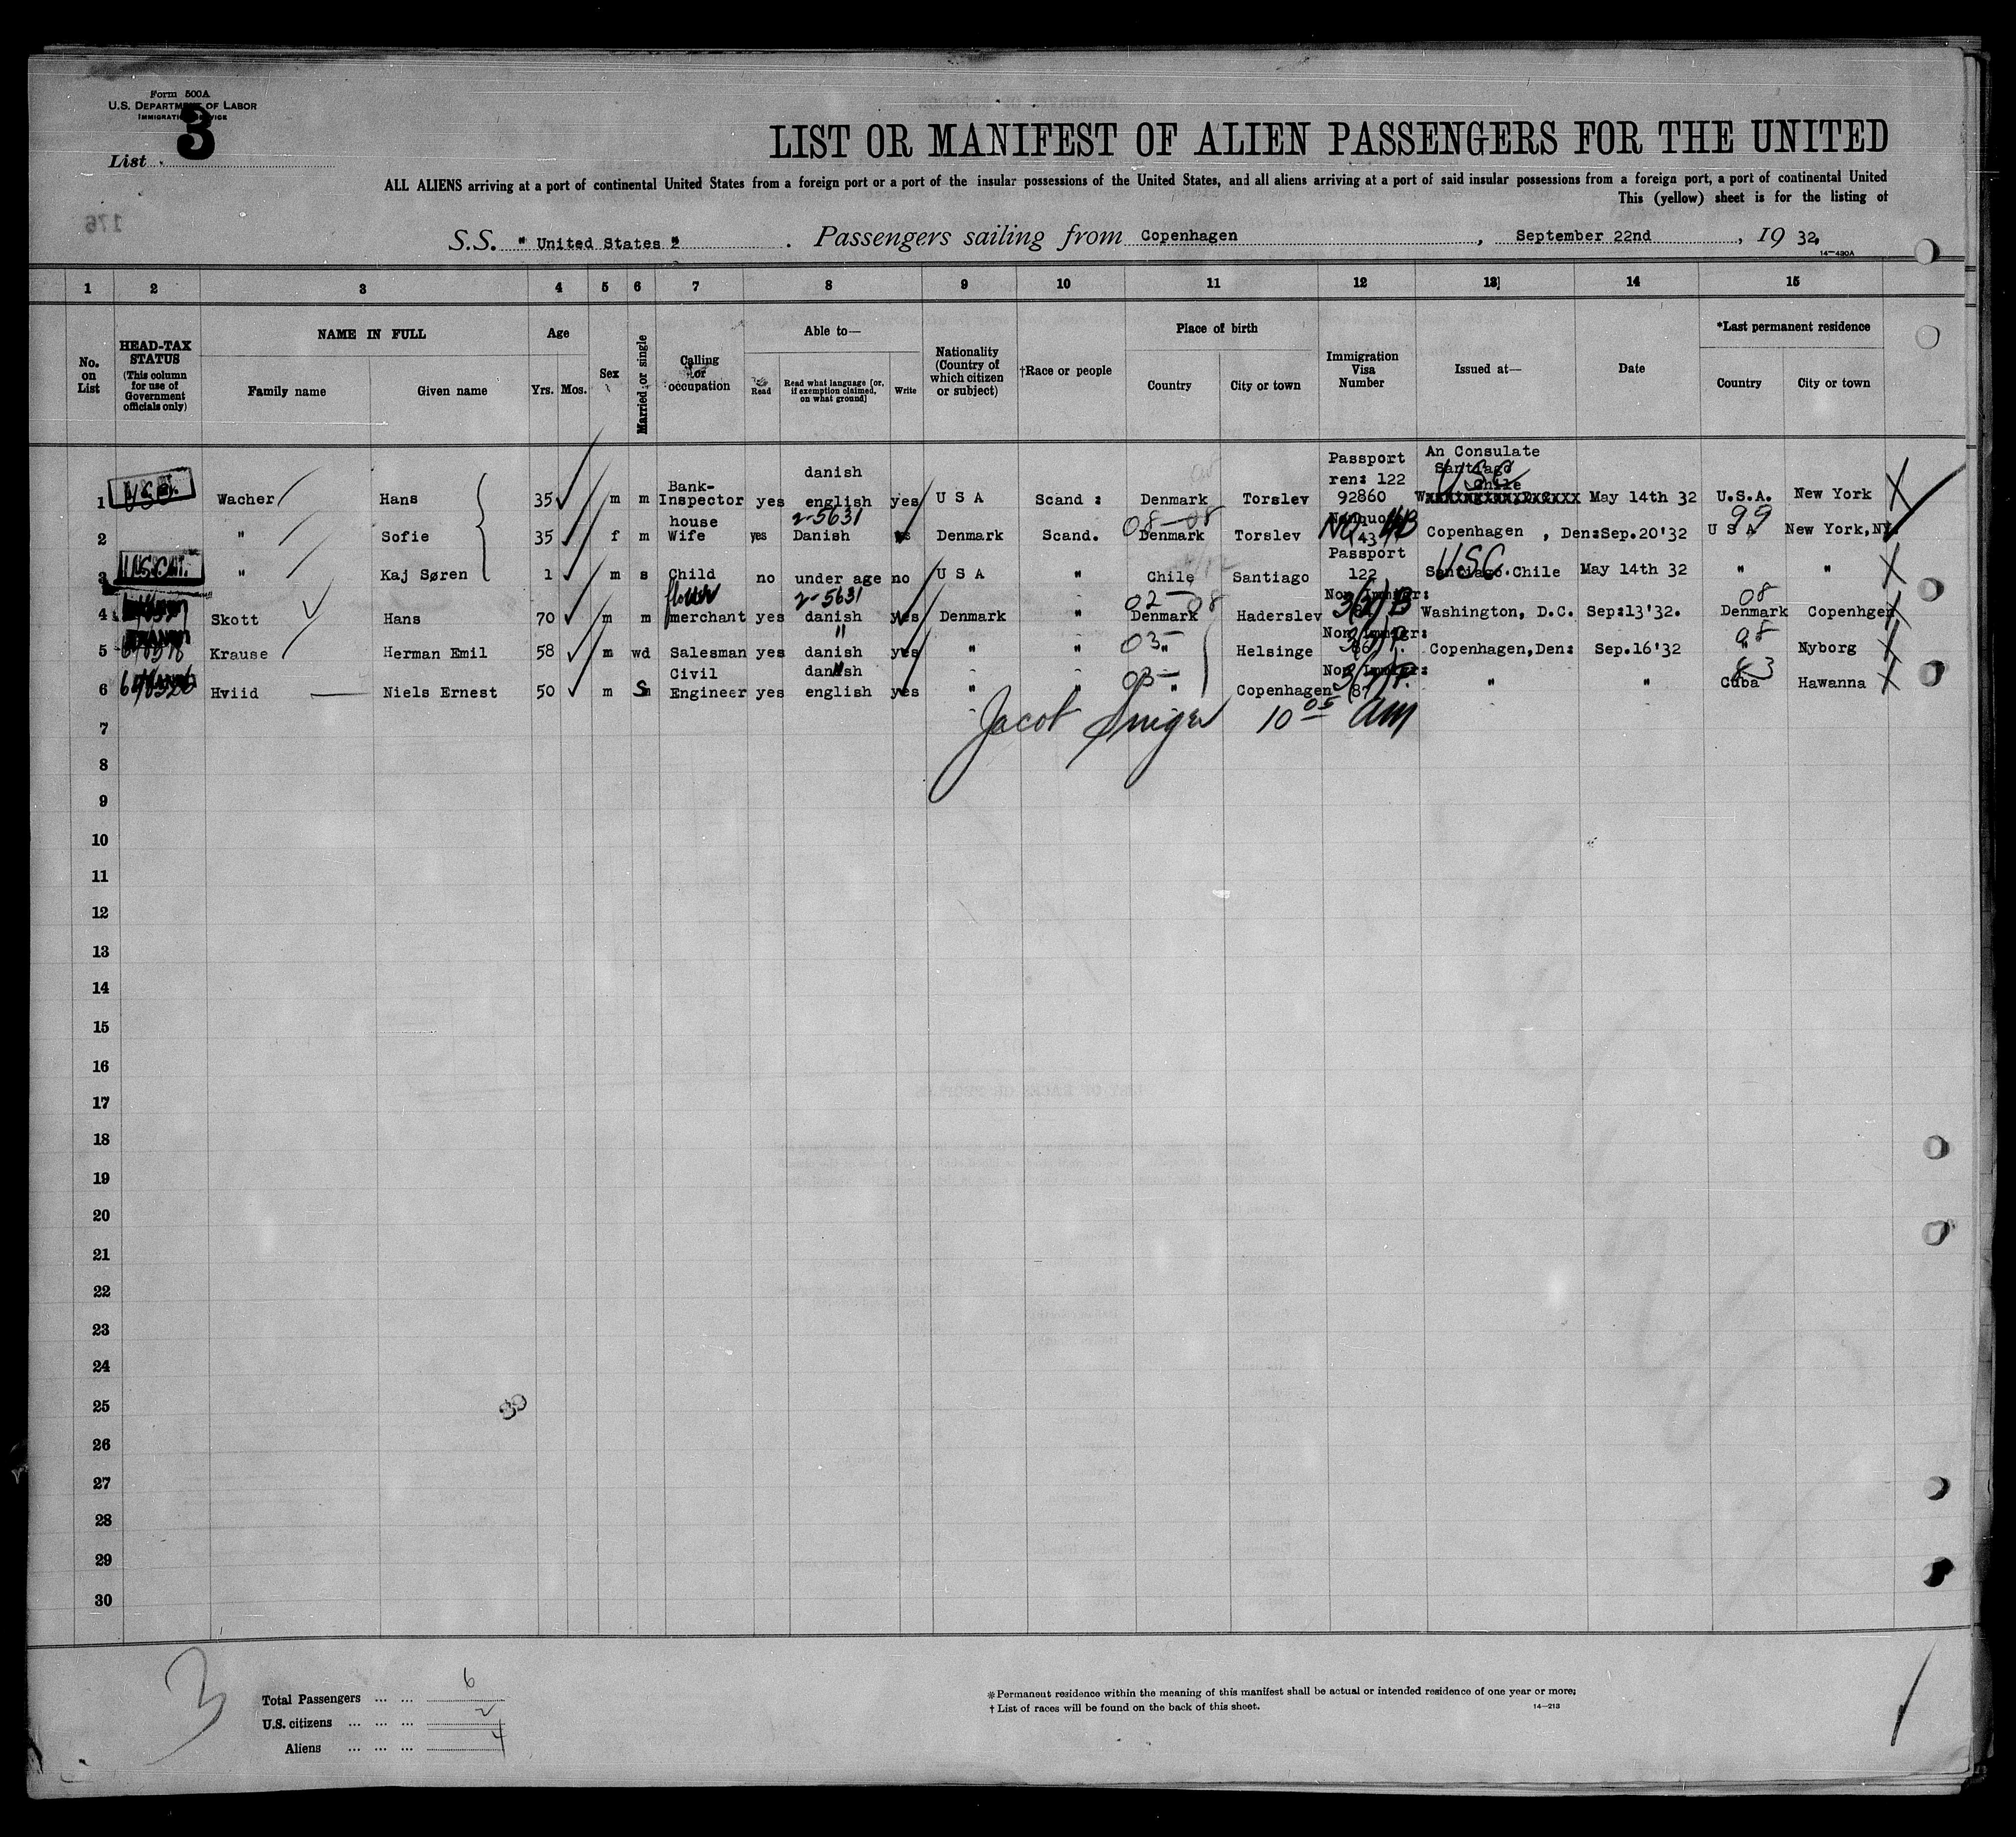 Form 500A
U.S. DEPARTMENT OF LABOR
IMMIGRATION SERVICE
List 3
LIST OR MANIFEST OF ALIEN PASSENGERS FOR THE UNITED
ALL ALIENS arriving at a port of continental United States from a foreign port or a port of the insular possessions of the United States, and all aliens arriving at a port of said insular possessions from a foreign port, a port of continental United
This (yellow) sheet is for the listing of
176
S.S. " United States " . Passengers sailing from Copenhagen , September 22nd , 19 32,
14—430A
1 2 3 4 5 6 7 8 9 10 11 12 13 14 15
No. on List
HEAD-TAX STATUS (This column for use of Government officials only)
NAME IN FULL
Family name Given name
Age
Yrs. Mos.
Sex
Married or single
Calling or occupation
Able to—
Read Read what language [or, if exemption claimed, on what ground] Write
Nationality (Country of which citizen or subject)
†Race or people
Place of birth
Country City or town
Immigration Visa Number
Issued at—
Date
*Last permanent residence
Country City or town
danish Passport An Consulate
ren: 122 Santiago
Bank- Chile
1 U.S.C. Wacher Hans 35 m m Inspector yes english yes U S A Scand : Denmark Torslev 92860 USC May 14th 32 U.S.A. New York
house 2-5631 08-08 99
2 " Sofie 35 f m Wife yes Danish yes Denmark Scand. Denmark Torslev 43 Copenhagen , Den:Sep.20'32 U S A New York,NY.
Passport
3 " Kaj Søren 1 m s Child no under age no U S A " Chile Santiago 122 Santiago.Chile USC May 14th 32 " "
flower 2-5631 02-08 Non Immigr: 08
4 Skott Hans 70 m m merchant yes danish yes Denmark " Denmark Haderslev 3(2)B Washington, D.C. Sep:13'32. Denmark Copenhgen
" 03- Non Immigr: 08
5 Krause Herman Emil 58 m wd Salesman yes danish yes " " " Helsinge Copenhagen,Den: Sep.16'32 " Nyborg
Civil danish 03- Non Immigr: 83
6 Hviid Niels Ernest 50 m S Engineer yes english yes " " " Copenhagen 87 " " Cuba Hawanna
7 Jacob 10 05 am
8
9
10
11
12
13
14
15
16
17
18
19
20
21
22
23
24
25
26
27
28
29
30
3
Total Passengers ... ... 6
U.S. citizens ... ... ... 2
Aliens ... ... ... 4
*Permanent residence within the meaning of this manifest shall be actual or intended residence of one year or more;
† List of races will be found on the back of this sheet.
14—213